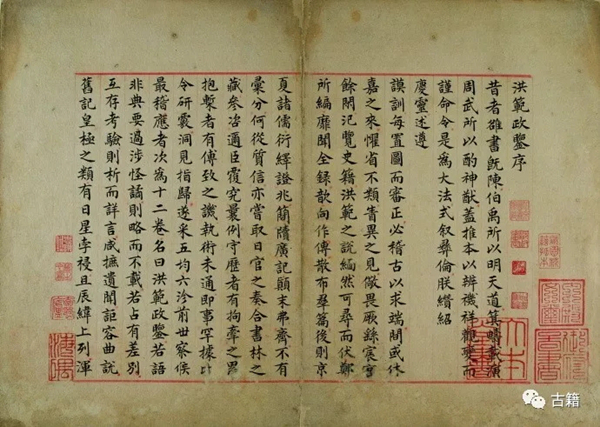 洪範政鑒序
昔者雒書既陳伯禹所以明天道箕疇載演
周武所以酌神猷蓋推本以辨禨祥觀變而
謹命令是為大法式叙彝倫朕纘紹
慶靈述遵
謨訓每置圖而審正必稽古以求端間或休
嘉之來懼省不類眚異之見儆畏厥繇宸
餘閒氾覽史籍洪範之說緬然可尋而伏鄭
所編靡聞全録歆向作傳散布羣篇後則京
夏諸儒衍繹證兆簡牘廣記顛末弗齊不有
彙分何從質信亦嘗取日官之奏合書林之
藏參咨邇臣覆究曩例守歷者有拘牽之累
抱槧者有傅致之譏執術未通即事罕據比
令研覈洞見指歸遂采五均六沴前世察候
最稽應者次為十二卷名曰洪範政鑒若語
非典要過涉怪譎則略而不載若占有差別
互存考驗則析而詳言咸摭遺聞詎容曲說
舊記皇極之類有日星孛祲且辰緯上列渾
古籍